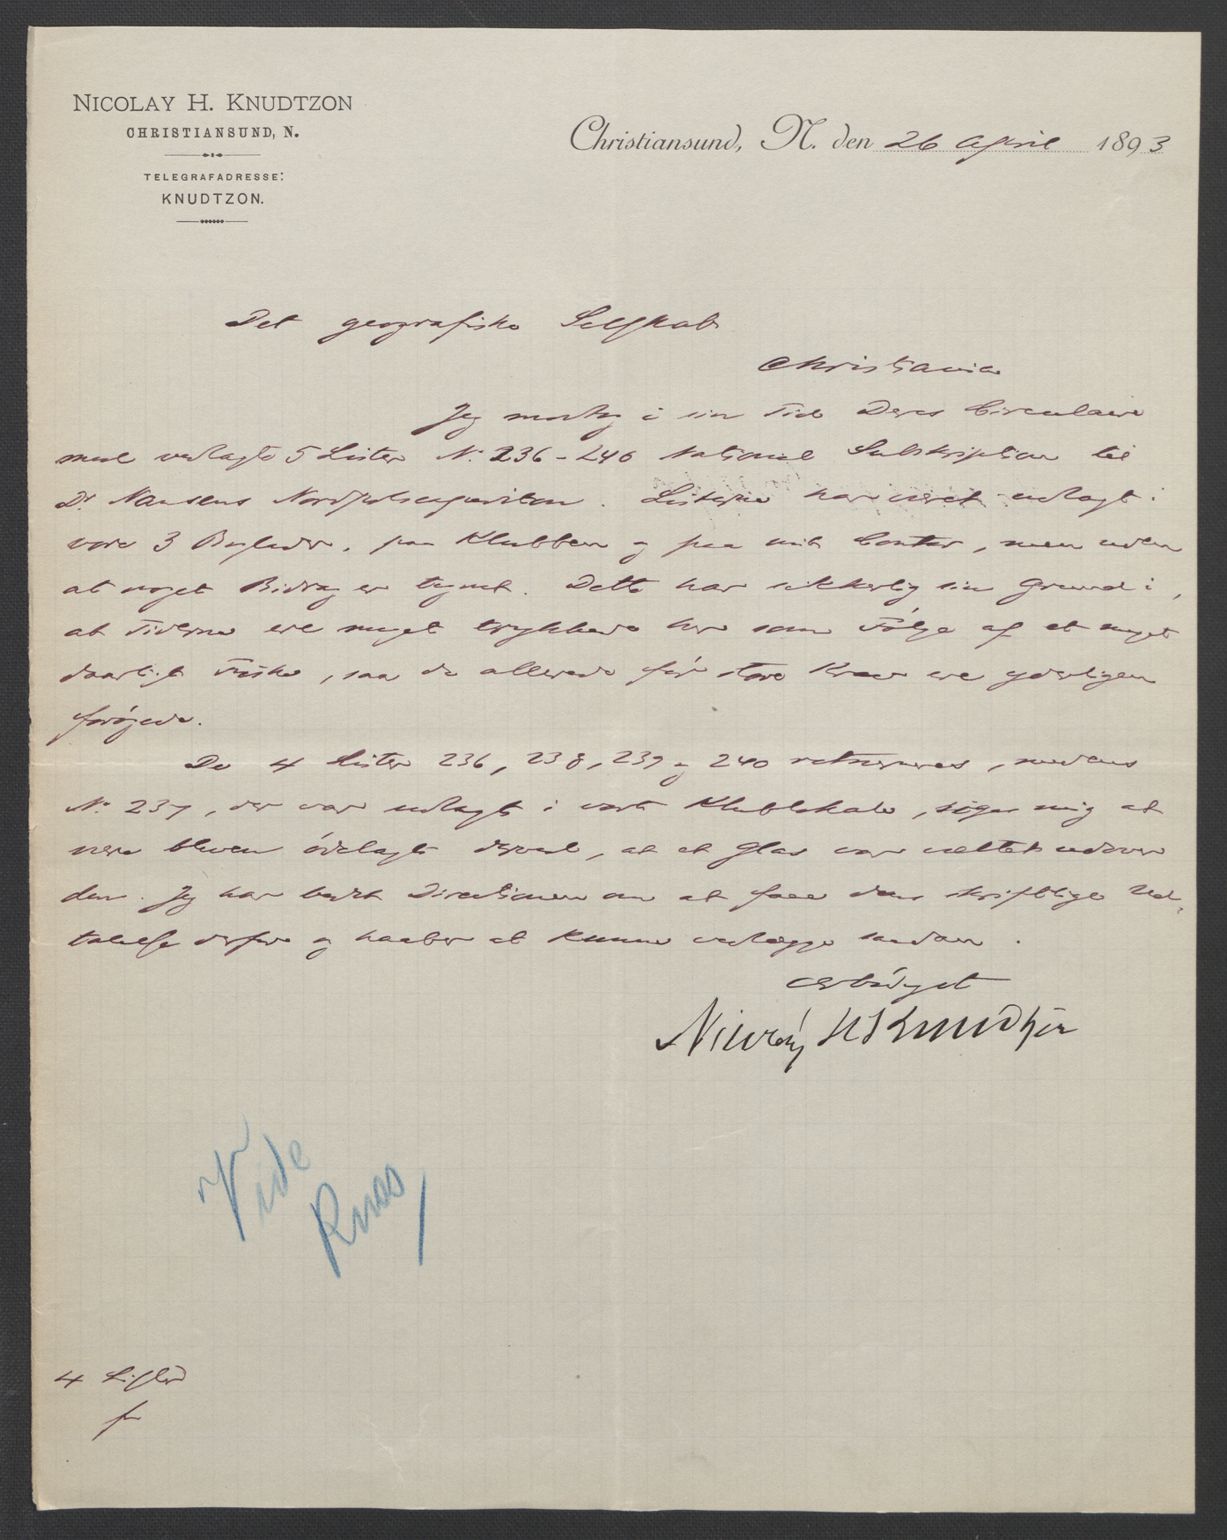 NICOLAY H. KNUDTZON
CHRISTIANSUND, N.
TELEGRAFADRESSE:
KNUDTZON.
Christiansund, N. den 26 April 1893
Det geografiske Selskab
Christiania
Jeg modtog i sin Tid Deres Circulaire
med vedlagte 5 Lister N. 236-240 National Subskription til
Dr Nansens Nordpolsexpedition. Listerne har været udlagt i
vore 3 Byblade, paa Klubben og paa mit Contor, men uden
at noget Bidrag er tegnet. Dette har sikkerlig sin Grund i,
at Tiderne ere meget trykkede her som Følge af et meget
daarligt Fiske, saa de allerede før store Krav ere yderligere
forøgede.
De 4 Lister 236, 238, 239 og 240 returneres, medens
N. 237, der var udlagt i vort Klublokale, siges mig at
være bleven ødelagt derved, at et Glas var væltet udover
den. Jeg har bedt Directionen om at faae dens skriftlige Ud-
talelse derfor og haaber at kunne vedlægge saadan.
Ærbødigst
Nicolay H Knudtzon
Vide
4 Lister